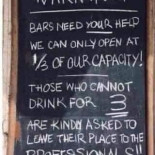 WARNING!
BARS NEED YOUR HELP
WE CAN ONLY OPEN AT
1/3 OF OUR CAPACITY!
THOSE WHO CANNOT
DRINK FOR 3
ARE KINDLY ASKED TO
LEAVE THEIR PLACE TO THE
PROFESSIONALS!!